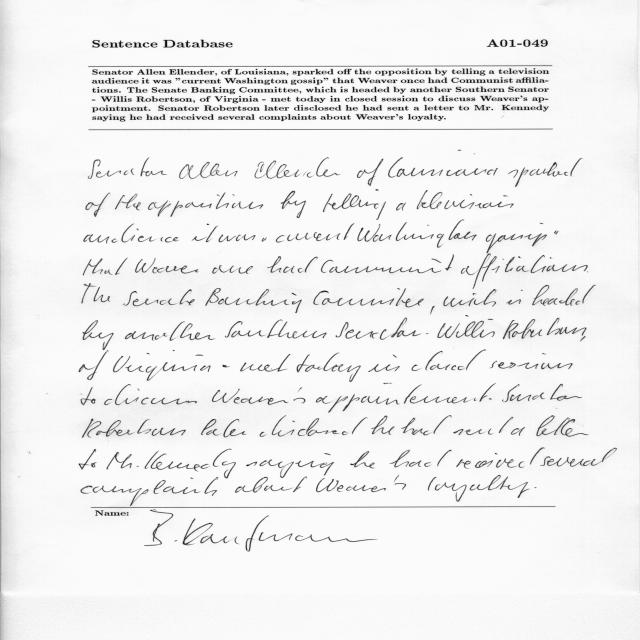 Sentence Database A01-049
Senator Allen Ellender, of Louisiana, sparked off the opposition by telling a television
audience it was "current Washington gossip" that Weaver once had Communist affilia-
tions. The Senate Banking Committee, which is headed by another Southern Senator
- Willis Robertson, of Virginia - met today in closed session to discuss Weaver's ap-
pointment. Senator Robertson later disclosed he had sent a letter to Mr. Kennedy
saying he had received several complaints about Weaver's loyalty.
Senator Allen Ellender of Louisiana sparked
of the opposition by telling a television
audience it was "current Washington gossip"
that Weaver one had Communist affiliations
The Senate Banking Committee, wich is headed
by another Southern Senator - Willis Robertson,
of Virginia - met today in closed session
to discuss Weaver's appointement. Senator
Robertson later disclosed he had sent a letter
to Mr. Kennedy saying he had received several
complaints about Weaver's loyalty.
Name:
B. Kaufmann